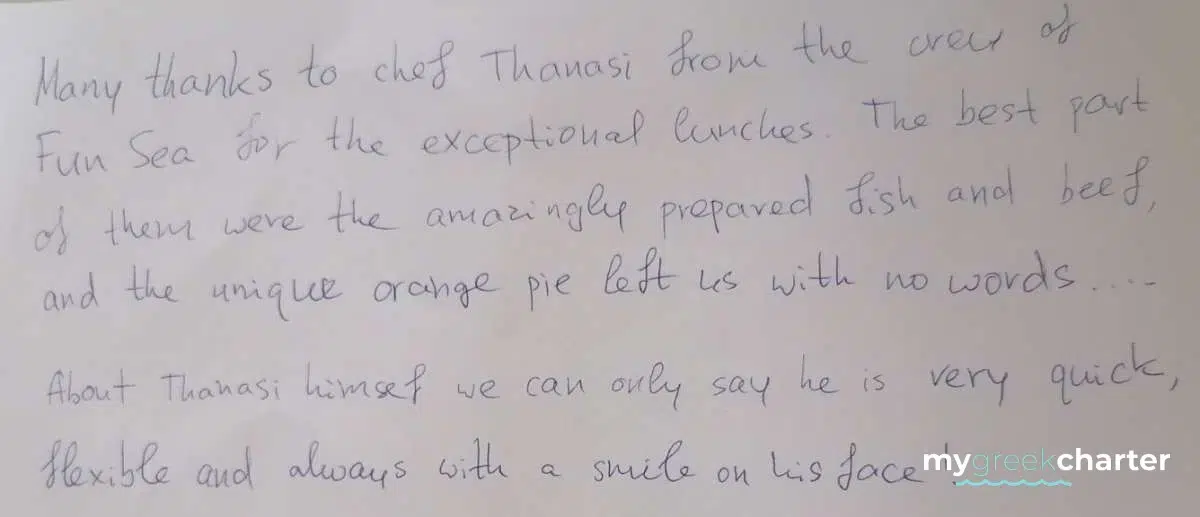 Many thanks to chef Thanasi from the crew of
Fun Sea for the exceptional lunches. The best part
of them were the amazingly prepared fish and beef,
and the unique orange pie left us with no words....
About Thanasi himsef we can only say he is very quick,
flexible and always with a smile on his face
mygreekcharter